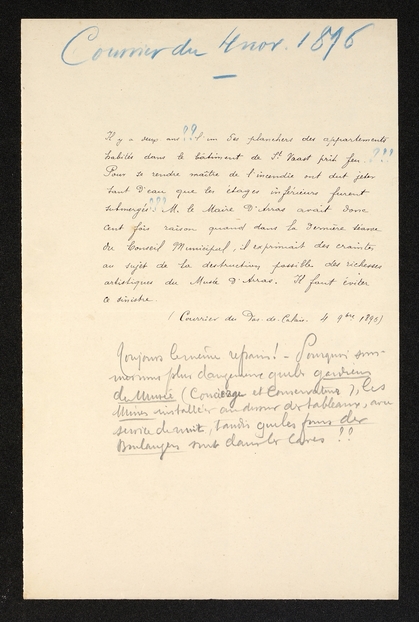 Courrier du 4 nov. 1896
Il y a deux ans ?? l'un des planchers des appartements
habités dans le bâtiment de St Vaast prit feu. ???
Pour se rendre maître de l'incendie on dut jeter
tant d'eau que les étages inférieurs furent
submergés ??? M. le Maire d'Arras avait donc
cent fois raison quand dans la dernière séance
du Conseil Municipal, il exprimait des craintes
au sujet de la destruction possible des richesses
artistiques du Musée d'Arras. Il faut éviter
ce sinistre.
(Courrier du Pas-de-Calais. 4 9bre 1896)
Toujours le même refrain! - Pourquoi som-
mes nous plus dangereux que les gardiens
du Musée (Concierge et Conservateur), les
installés au dessus des tableaux, avec
service de nuit, tandis que les fours des
Boulangers sont dans les Caves ??